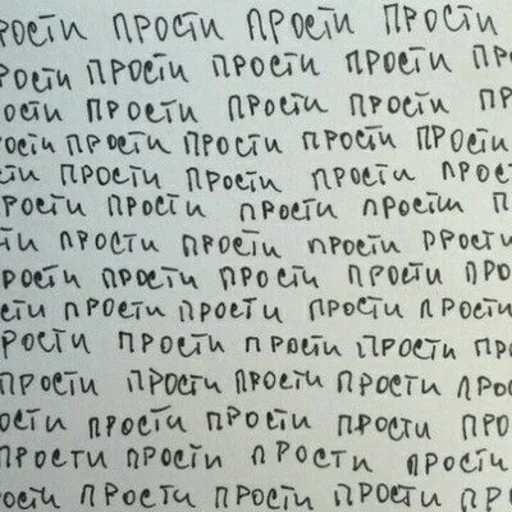 рости прости прости прости
рости прости прости прости пр
ости прости прости прости пр
ости прости прости прости прости
ти прости прости прости прос
рости прости прости прости п
ти прости прости прости прости
рости прости прости прости про
сти прости прости прости прости
рости прости прости прости пр
прости прости прости прости про
ости прости прости прости про
прости прости прости прости
ости прости прости прости пр